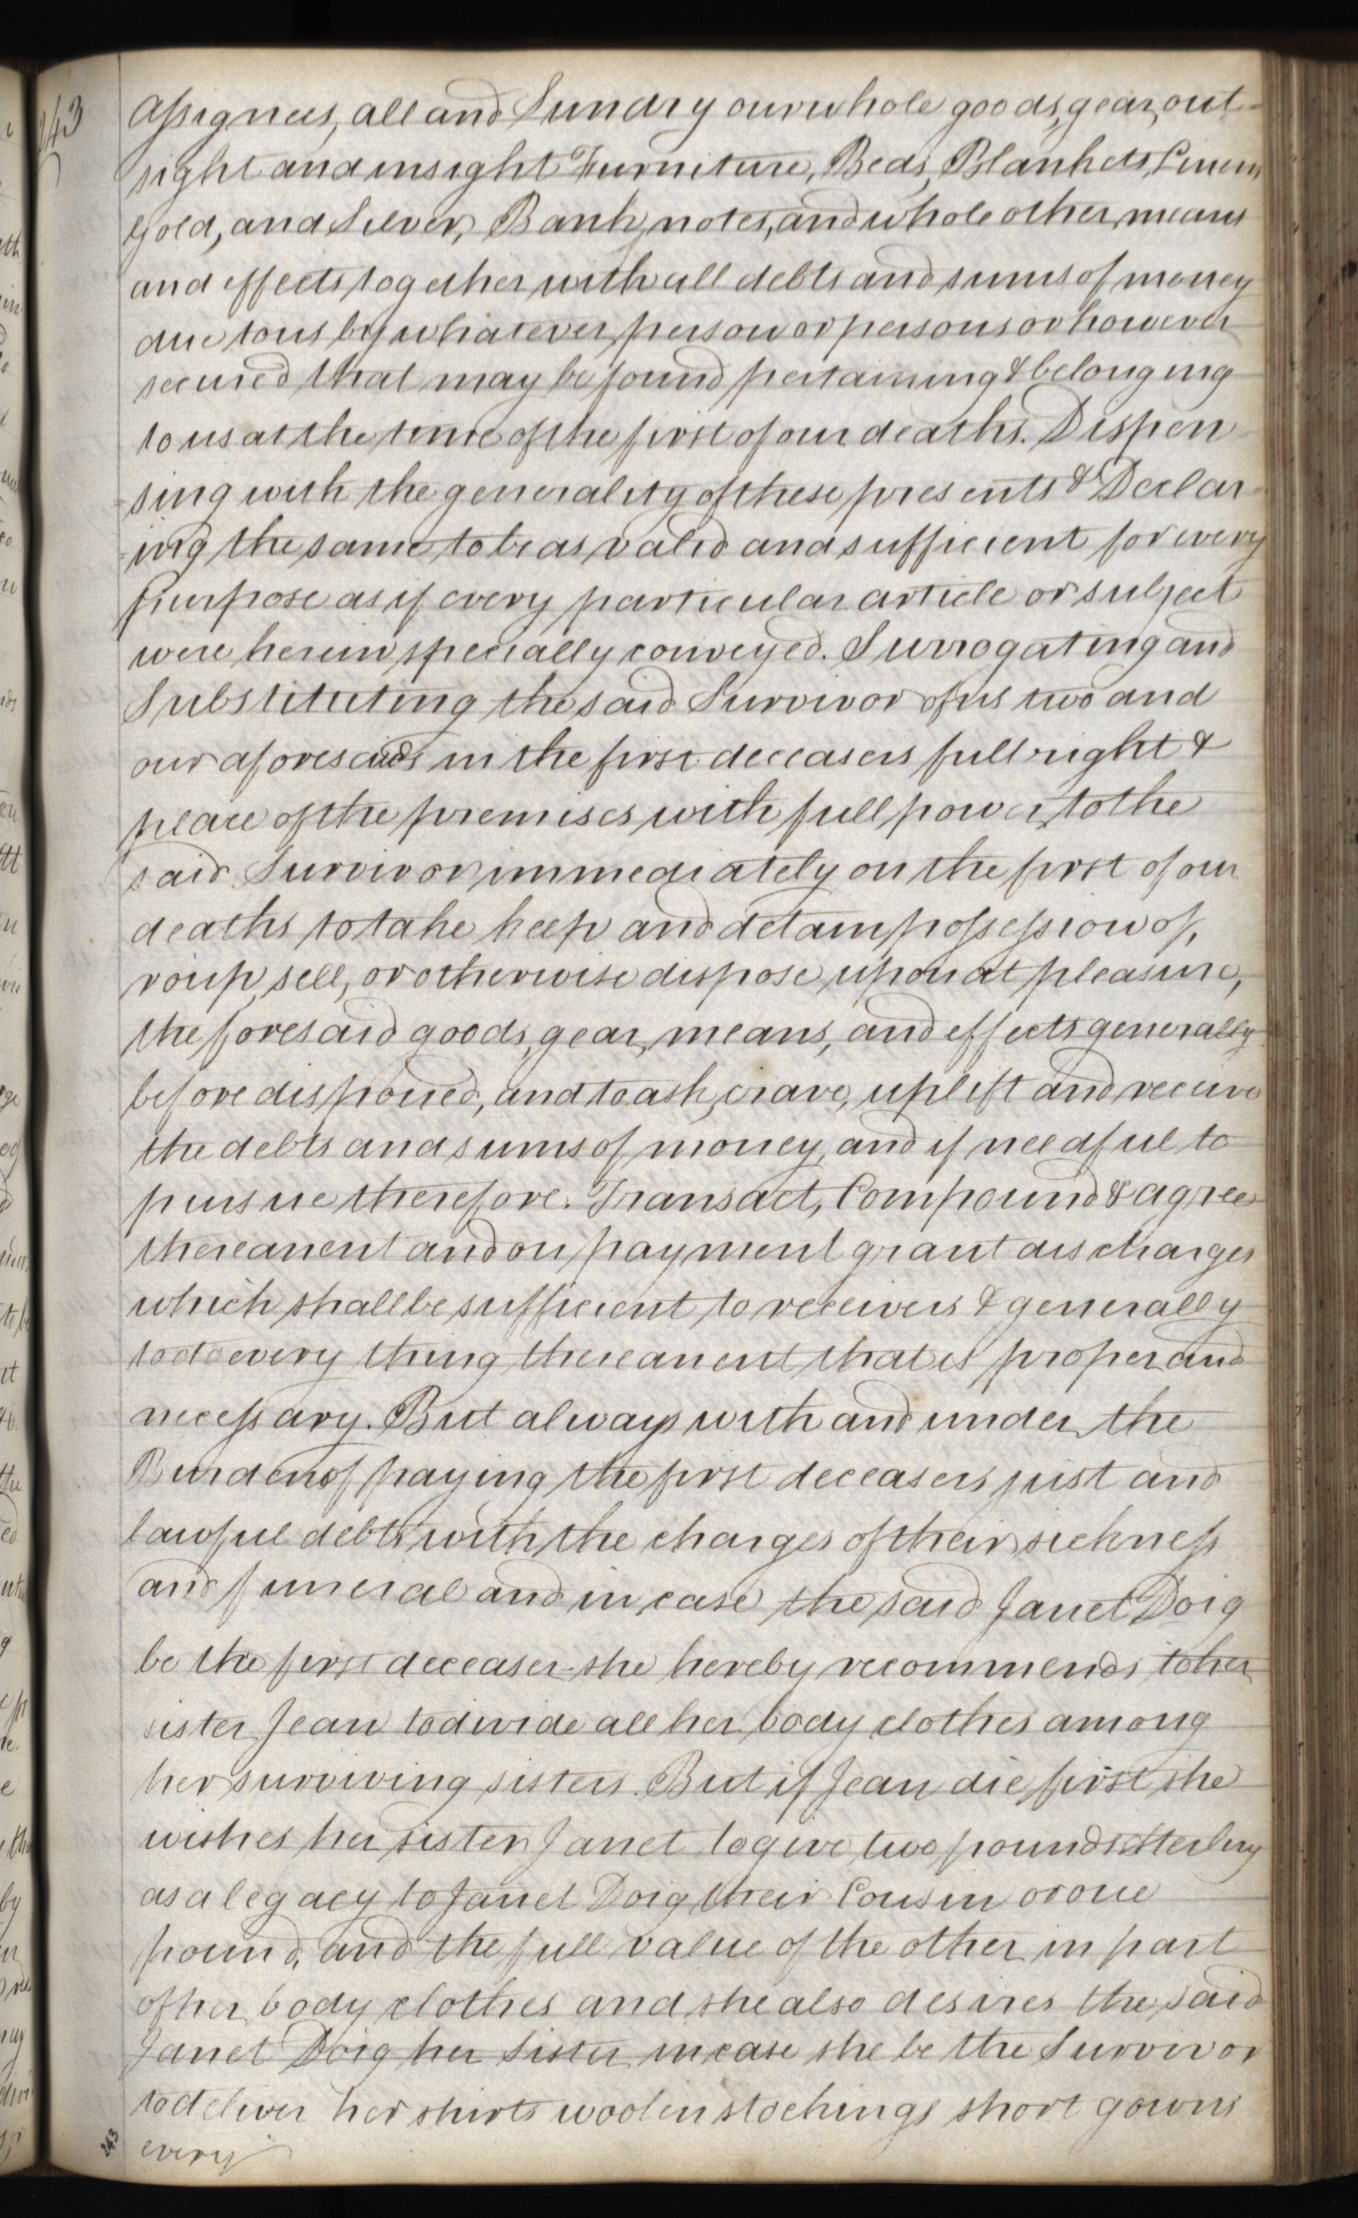 243
Assignees, all and Sundry our whole goods, gear, out-
sight and insight Furniture, Beds, Blankets, Linens
Gold, and Silver, Bank notes, and whole other means
and effects together with all debts and sums of money
due to us by whatever person or persons or however
secured that may be found pertaining & belonging
to us at the time of the first of our deaths. Dispen-
-sing with the generality of these presents & Declar-
-ing the same to be as valid and sufficient for every
purpose as if every particular article or subject
were herein specially conveyed. Surrogating and
Substituting the said Survivor of us two and
our aforesaids in the first deceasers full right &
place of the premises with full power to the
said Survivor immediately on the first of our
deaths to take keep and detain possession of,
roup, sell, or otherwise dispose upon at pleasure,
the foresaid goods, gear, means, and effects generally
before disponed, and to ask, crave, uplift and receive
the debts and sums of money, and if needful to
pursue therefore. Transact, Compound & agree
thereanent and on payment grant discharges
which shall be sufficient to receivers & generally
to do every thing thereanent that is proper and
necessary. But always with and under the
Burden of paying the first deceasers just and
lawful debts with the charges of their sickness
and funeral and in case the said Janet Doig
be the first deceaser she hereby recommends to her
sister Jean to divide all her body clothes among
her surviving sisters. But if Jean die first she
wishes her sister Janet to give two pounds sterling
as a legacy to Janet Doig their Cousin or one
pound, and the full value of the other in part
of her body clothes and she also desires the said
Janet Doig her Sister in case she be the Survivor
to deliver her shirts woolen stockings short gowns
every
243